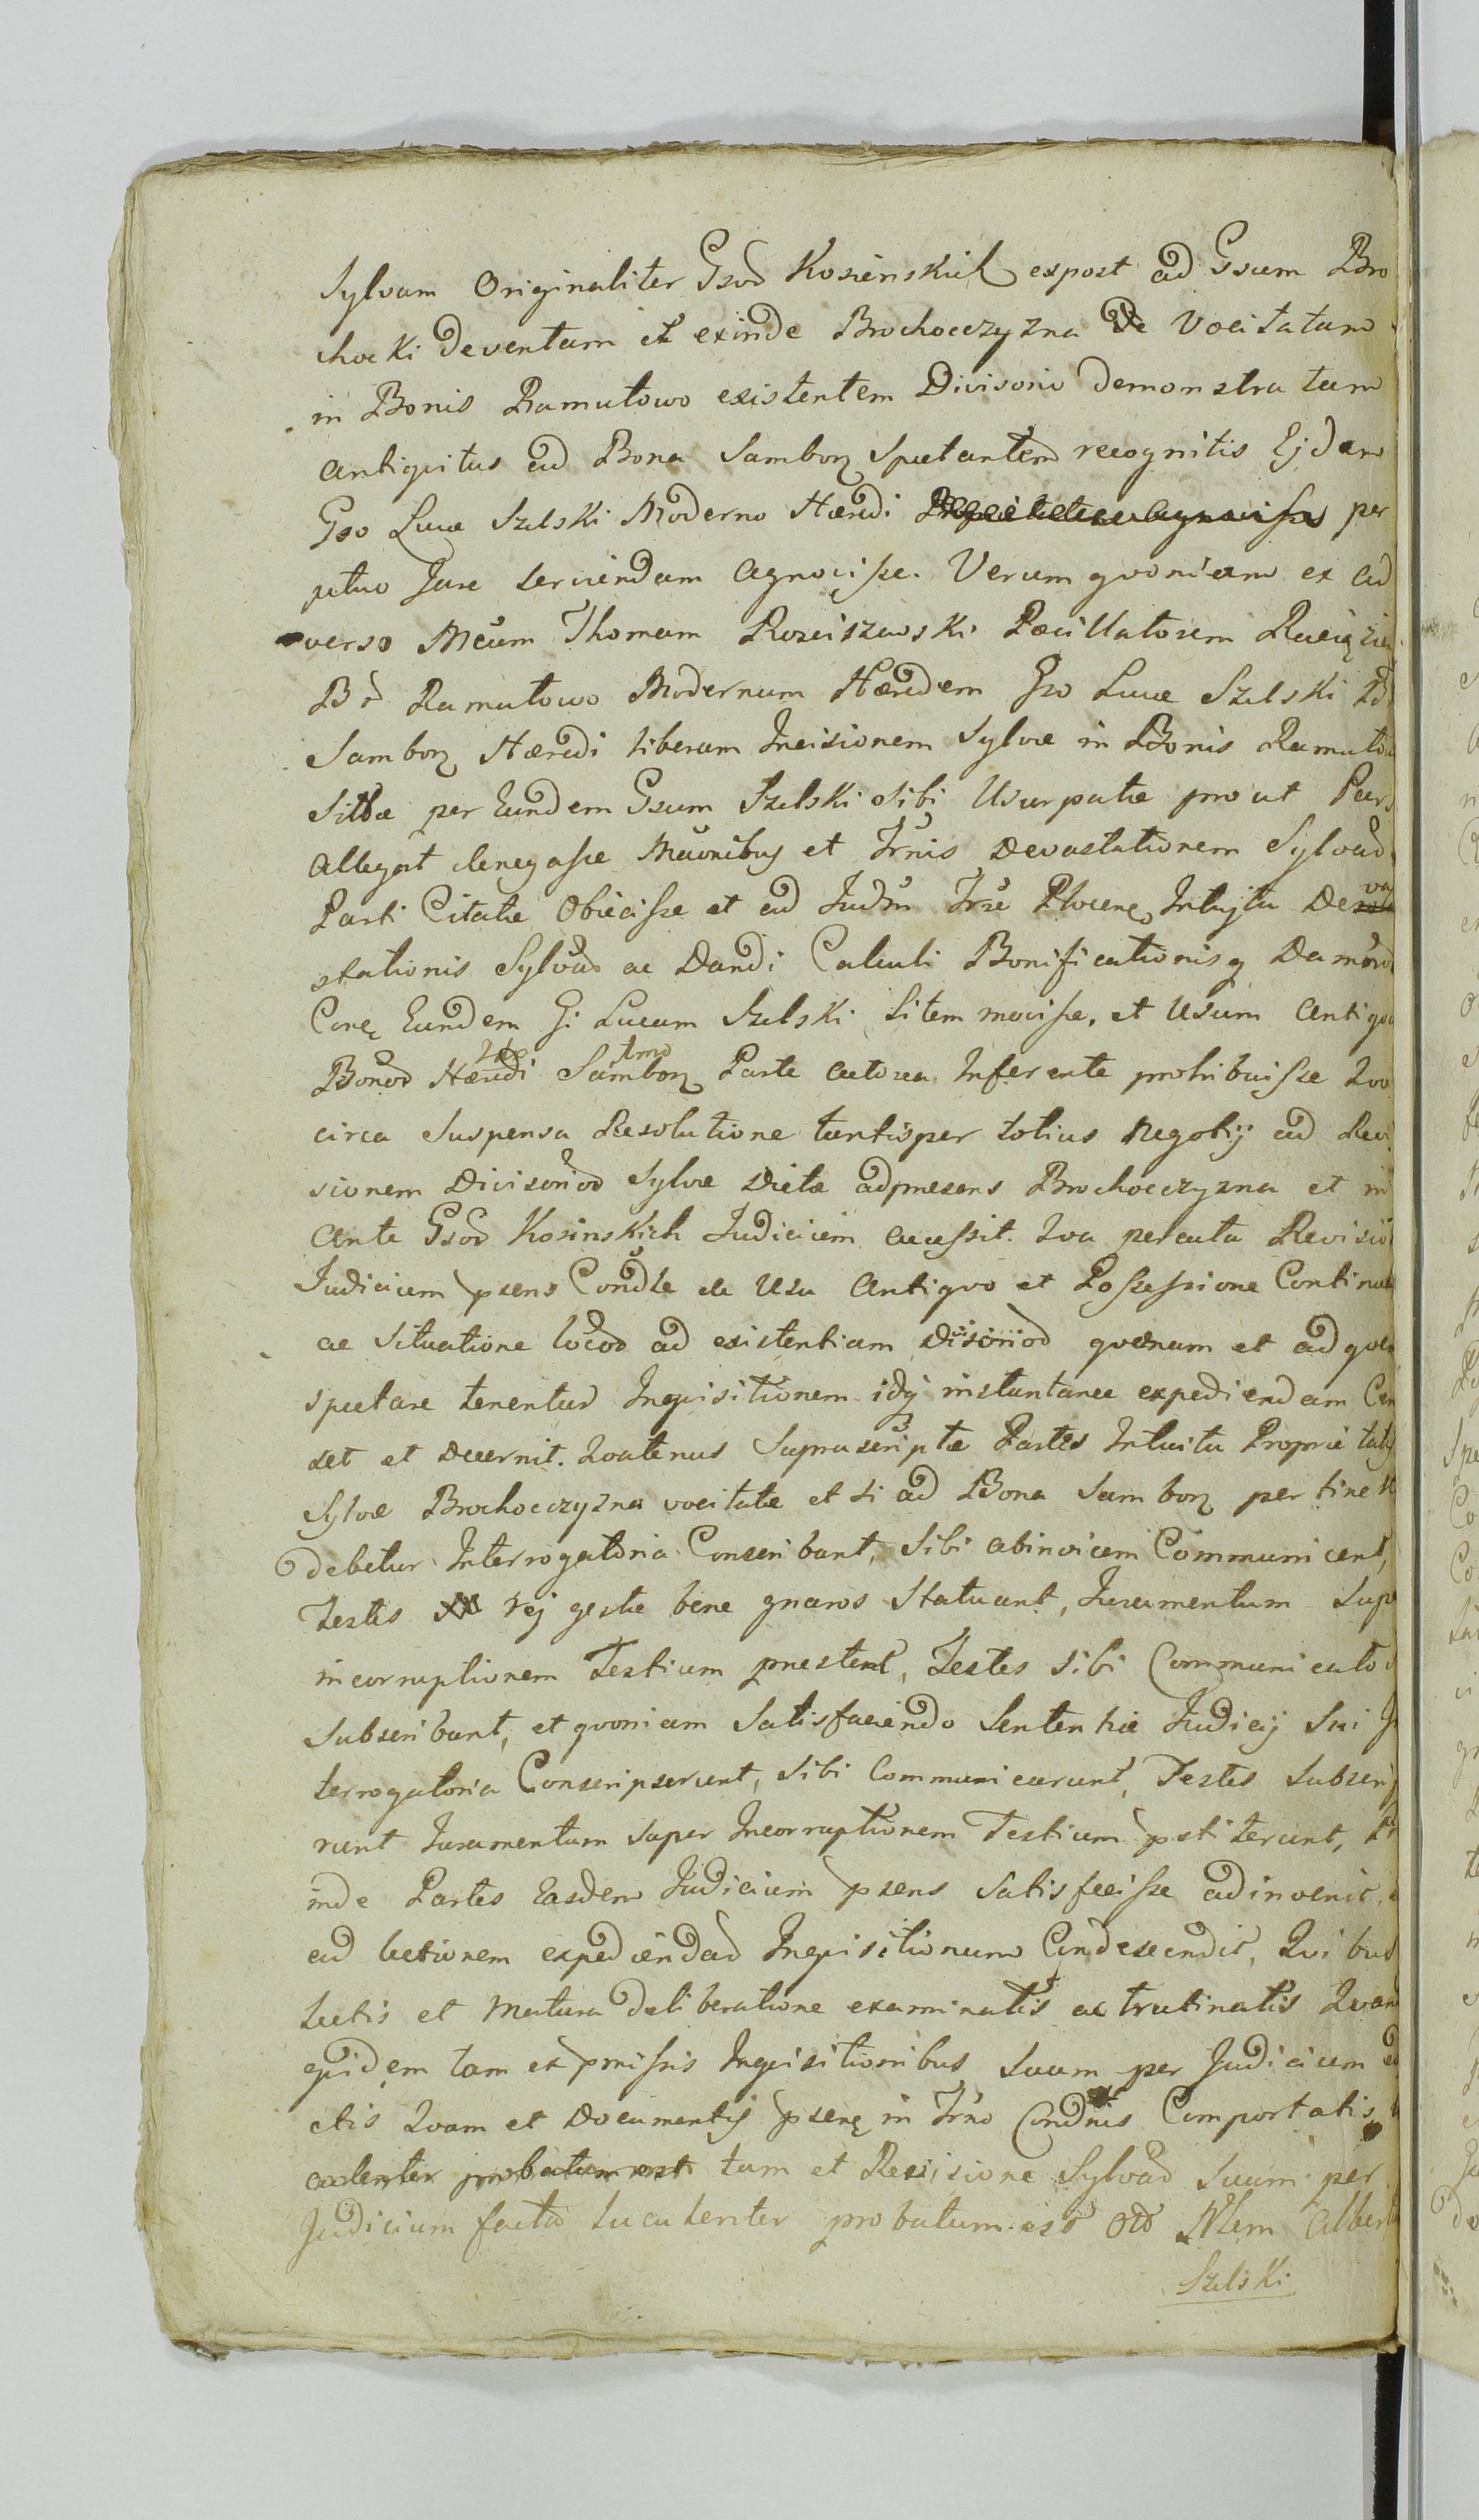 Sylvam Originaliter Gsod Kosienskich expost ad Gsum Bro
chocki deventam et exinde Brochocczyzna De Vocitatam
in Bonis Ramutowo existentem Divisorio demonstratam
antiquitus ad Bona Samborz Spectantem recognitis Ejdem
Gso Lucæ Szelski Moderno Hæredi per
petuo Jure serviendam agnovisse. Verum quoniam ex ad
verso Mcum Thomam Rosciszewski Pocillatorem Raciązien
Bd Ramutowo Modernum Hæredem Gso Lucæ Szelski Bd
Samborz Hæredi liberam Incisionem Sylvæ in Bonis Ramuto
Sitæ per Eundem Gsum Szelski sibi Usurpatæ prout Pars
allegat denegasse Mcionibus et Trnis Devastationem Sylvad
Parti Citatæ Obiecisse et ad Judm Trse Plocens Intuitu Deva
stationis Sylvad ac Dandi Calculi Bonificationisq Damnod
Cone Eundem G: Lucam Szelski Litem movisse, et Usum Antiqu
Bonod Hæredi Samborz Parte actorea Inferente prohibuisse Quo
circa Suspensa Resolutione tantisper totius Negotij ad Revi
sionem Divisoriod Sylvæ Dictæ adpræsens Brochocczyzna et in
Ante Gsod Kosinskich Judicium accessit. Qua peracta Revisio
Judicium psens Condle de Usu Antiquo et Possessione Continua
ac Situatione locod ad existentiam Divisoriod quænam et ad quem
spectare tenentur Inquisitionem idq instantanee expediendam Cen
set et Decernit. Quatenus Suprascriptæ Partes Intuitu Proprietatis
Sylvæ Brochocczyzna vocitatæ et si ad Bona Samborz pertinere
debetur Interrogatoria Conscribant, Sibi abinvicem Communicent,
Testes rej gestæ bene gnaros Statuant, Juramentum Supe
incorruptionem Testium præstent, Testes sibi Communicato
Subscribant, et quoniam Satisfaciendo Sententiæ Judicij Sui In
terrogatoria Conscripserunt, Sibi Communicarunt, Testes Subscrip
runt Juramentum super Incorruptionem Testium pstiterunt,
inde Partes Easdem Judicium psens Satisfecisse adinvenit,
ad lectionem expediendad Inquisitionum Condescendit, Quibus
Lectis et Matura deliberatione examinatis ac trutinatis Quan
quidem tam ex pmissis Inquisitionibus suum per Judicium ed
ctis Quam et Documentis psens in Trno Condnis Comportatis
tam et Revisione Sylvad Suum per
Judicium facta Luculenter probatum est Olt Mlem Albert
Szelski